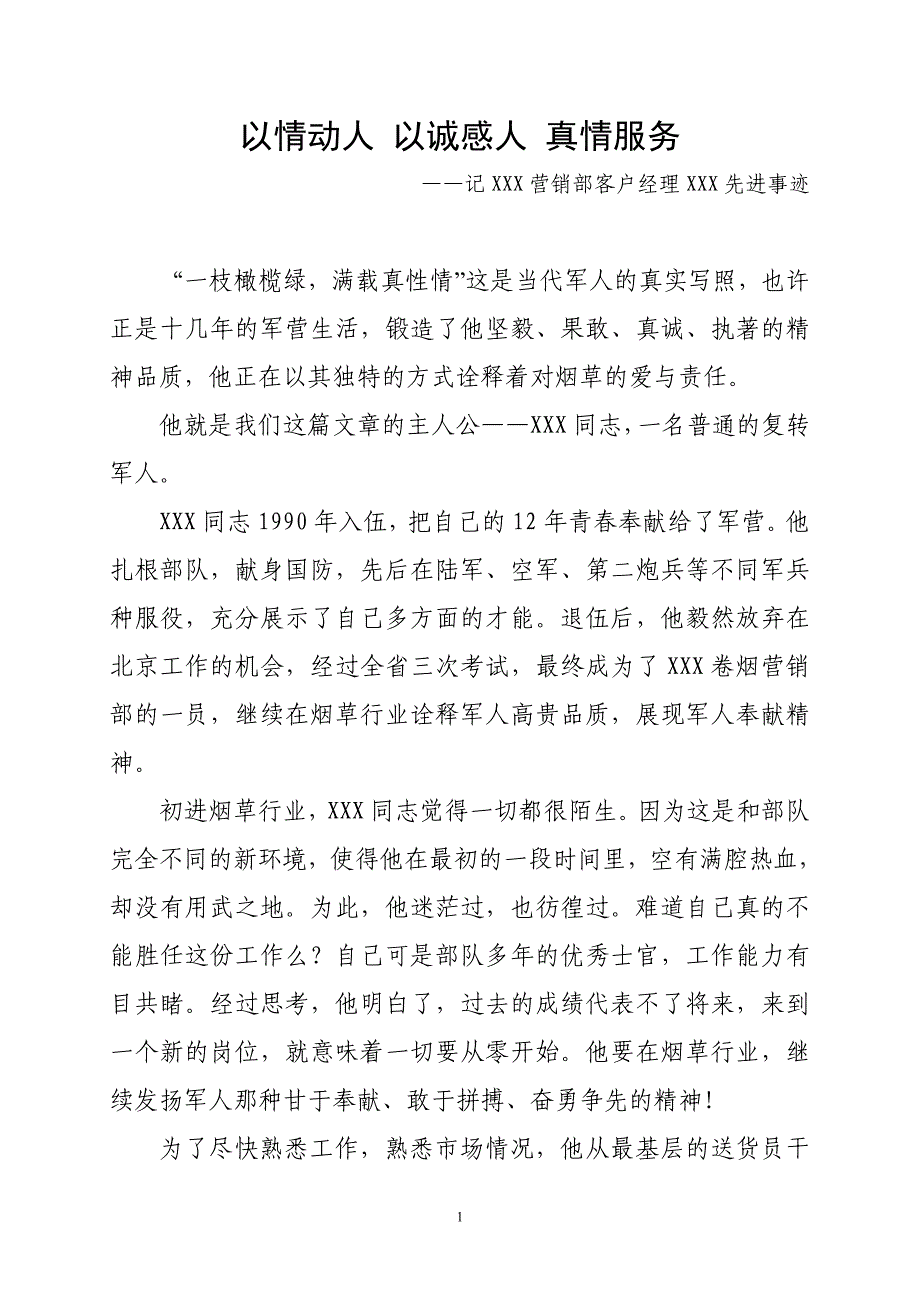 以情动人 以诚感人 真情服务
——记 XXX 营销部客户经理 XXX 先进事迹
“一枝橄榄绿，满载真性情”这是当代军人的真实写照，也许
正是十几年的军营生活，锻造了他坚毅、果敢、真诚、执著的精
神品质，他正在以其独特的方式诠释着对烟草的爱与责任。
他就是我们这篇文章的主人公——XXX 同志，一名普通的复转
军人。
XXX 同志 1990 年入伍，把自己的 12 年青春奉献给了军营。他
扎根部队，献身国防，先后在陆军、空军、第二炮兵等不同军兵
种服役，充分展示了自己多方面的才能。退伍后，他毅然放弃在
北京工作的机会，经过全省三次考试，最终成为了 XXX 卷烟营销
部的一员，继续在烟草行业诠释军人高贵品质，展现军人奉献精
神。
初进烟草行业，XXX 同志觉得一切都很陌生。因为这是和部队
完全不同的新环境，使得他在最初的一段时间里，空有满腔热血，
却没有用武之地。为此，他迷茫过，也彷徨过。难道自己真的不
能胜任这份工作么？自己可是部队多年的优秀士官，工作能力有
目共睹。经过思考，他明白了，过去的成绩代表不了将来，来到
一个新的岗位，就意味着一切要从零开始。他要在烟草行业，继
续发扬军人那种甘于奉献、敢于拼搏、奋勇争先的精神！
为了尽快熟悉工作，熟悉市场情况，他从最基层的送货员干
1